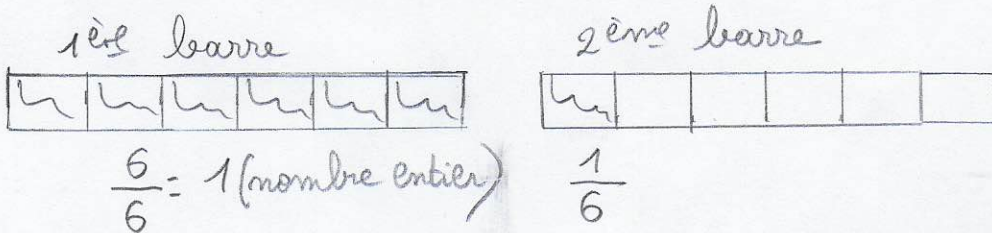 1ère barre 2ème barre
6/6 = 1 (nombre entier) 1/6